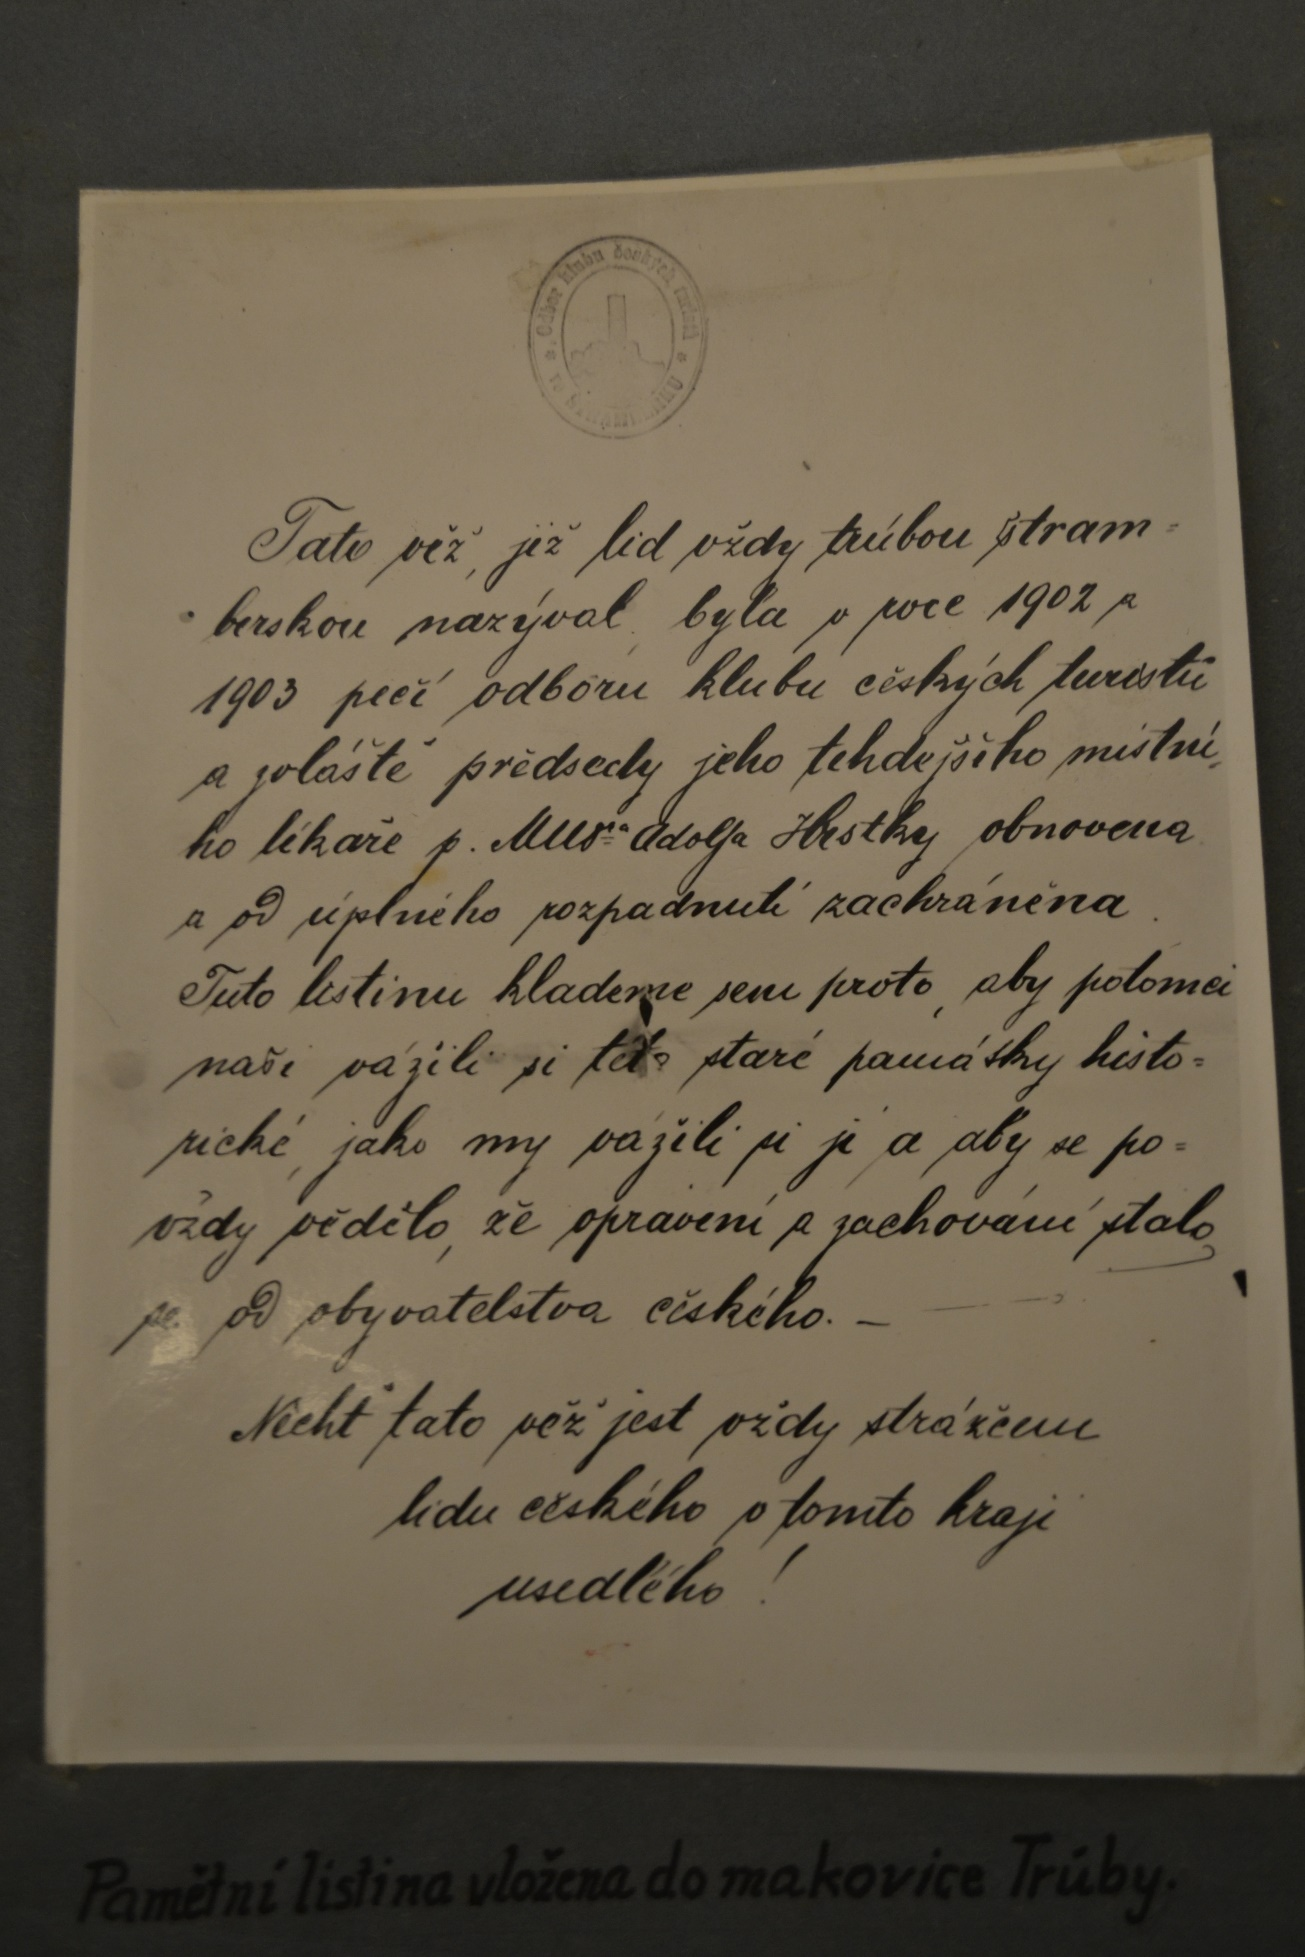 Odbor klubu českých turistů
ve ŠTRAMBERKU
Tato věž, již lid vždy trúbou štram=
berskou nazýval, byla v roce 1902 a
1903 péčí odboru klubu českých turistů
a zvláště předsedy jeho tehdejšího místní,
ho lékaře p. MUDra Adolfa Hrstky obnovena
a od úplného rozpadnutí zachráněna.
Tuto listinu klademe sem proto, aby potomci
naši vážili si této staré památky histo=
rické, jako my vážili si jí a aby se po=
vždy vědělo, že opravení a zachování stalo
se od obyvatelstva českého. —
Nechť tato věž jest vždy strážcem
lidu českého v tomto kraji
usedlého!
Pamětní listina vložena do makovice Trúby.